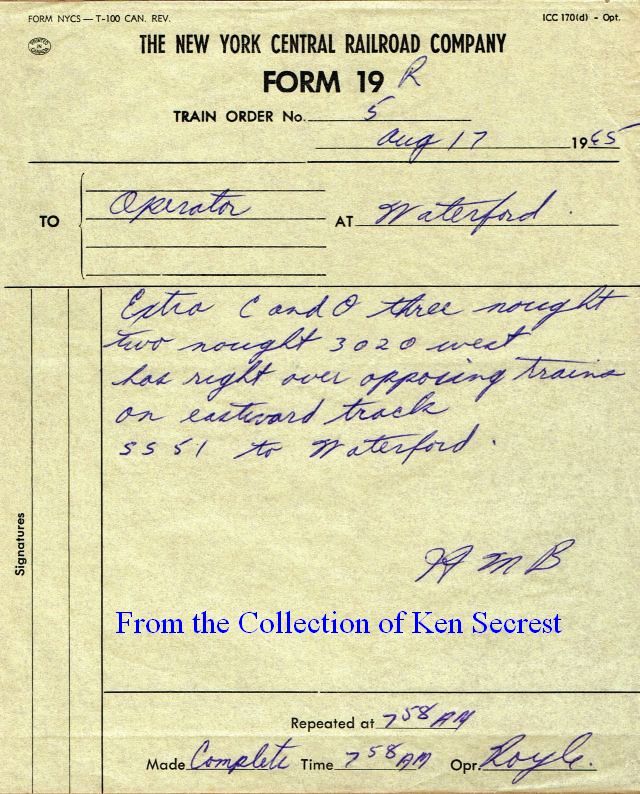 FORM NYCS — T-100 CAN. REV.
ICC 170(d) - Opt.
PRINTED IN CANADA
THE NEW YORK CENTRAL RAILROAD COMPANY
FORM 19 R
TRAIN ORDER No. 5
Aug 17 1965
TO Operator AT Waterford .
Extra C and O three nought
two nought 3020 west
has right over opposing trains
on eastward track
SS 51 to Waterford .
Signatures
H M B
From the Collection of Ken Secrest
Repeated at 7 58 AM
Made Complete Time 7 58 AM Opr. Royle.